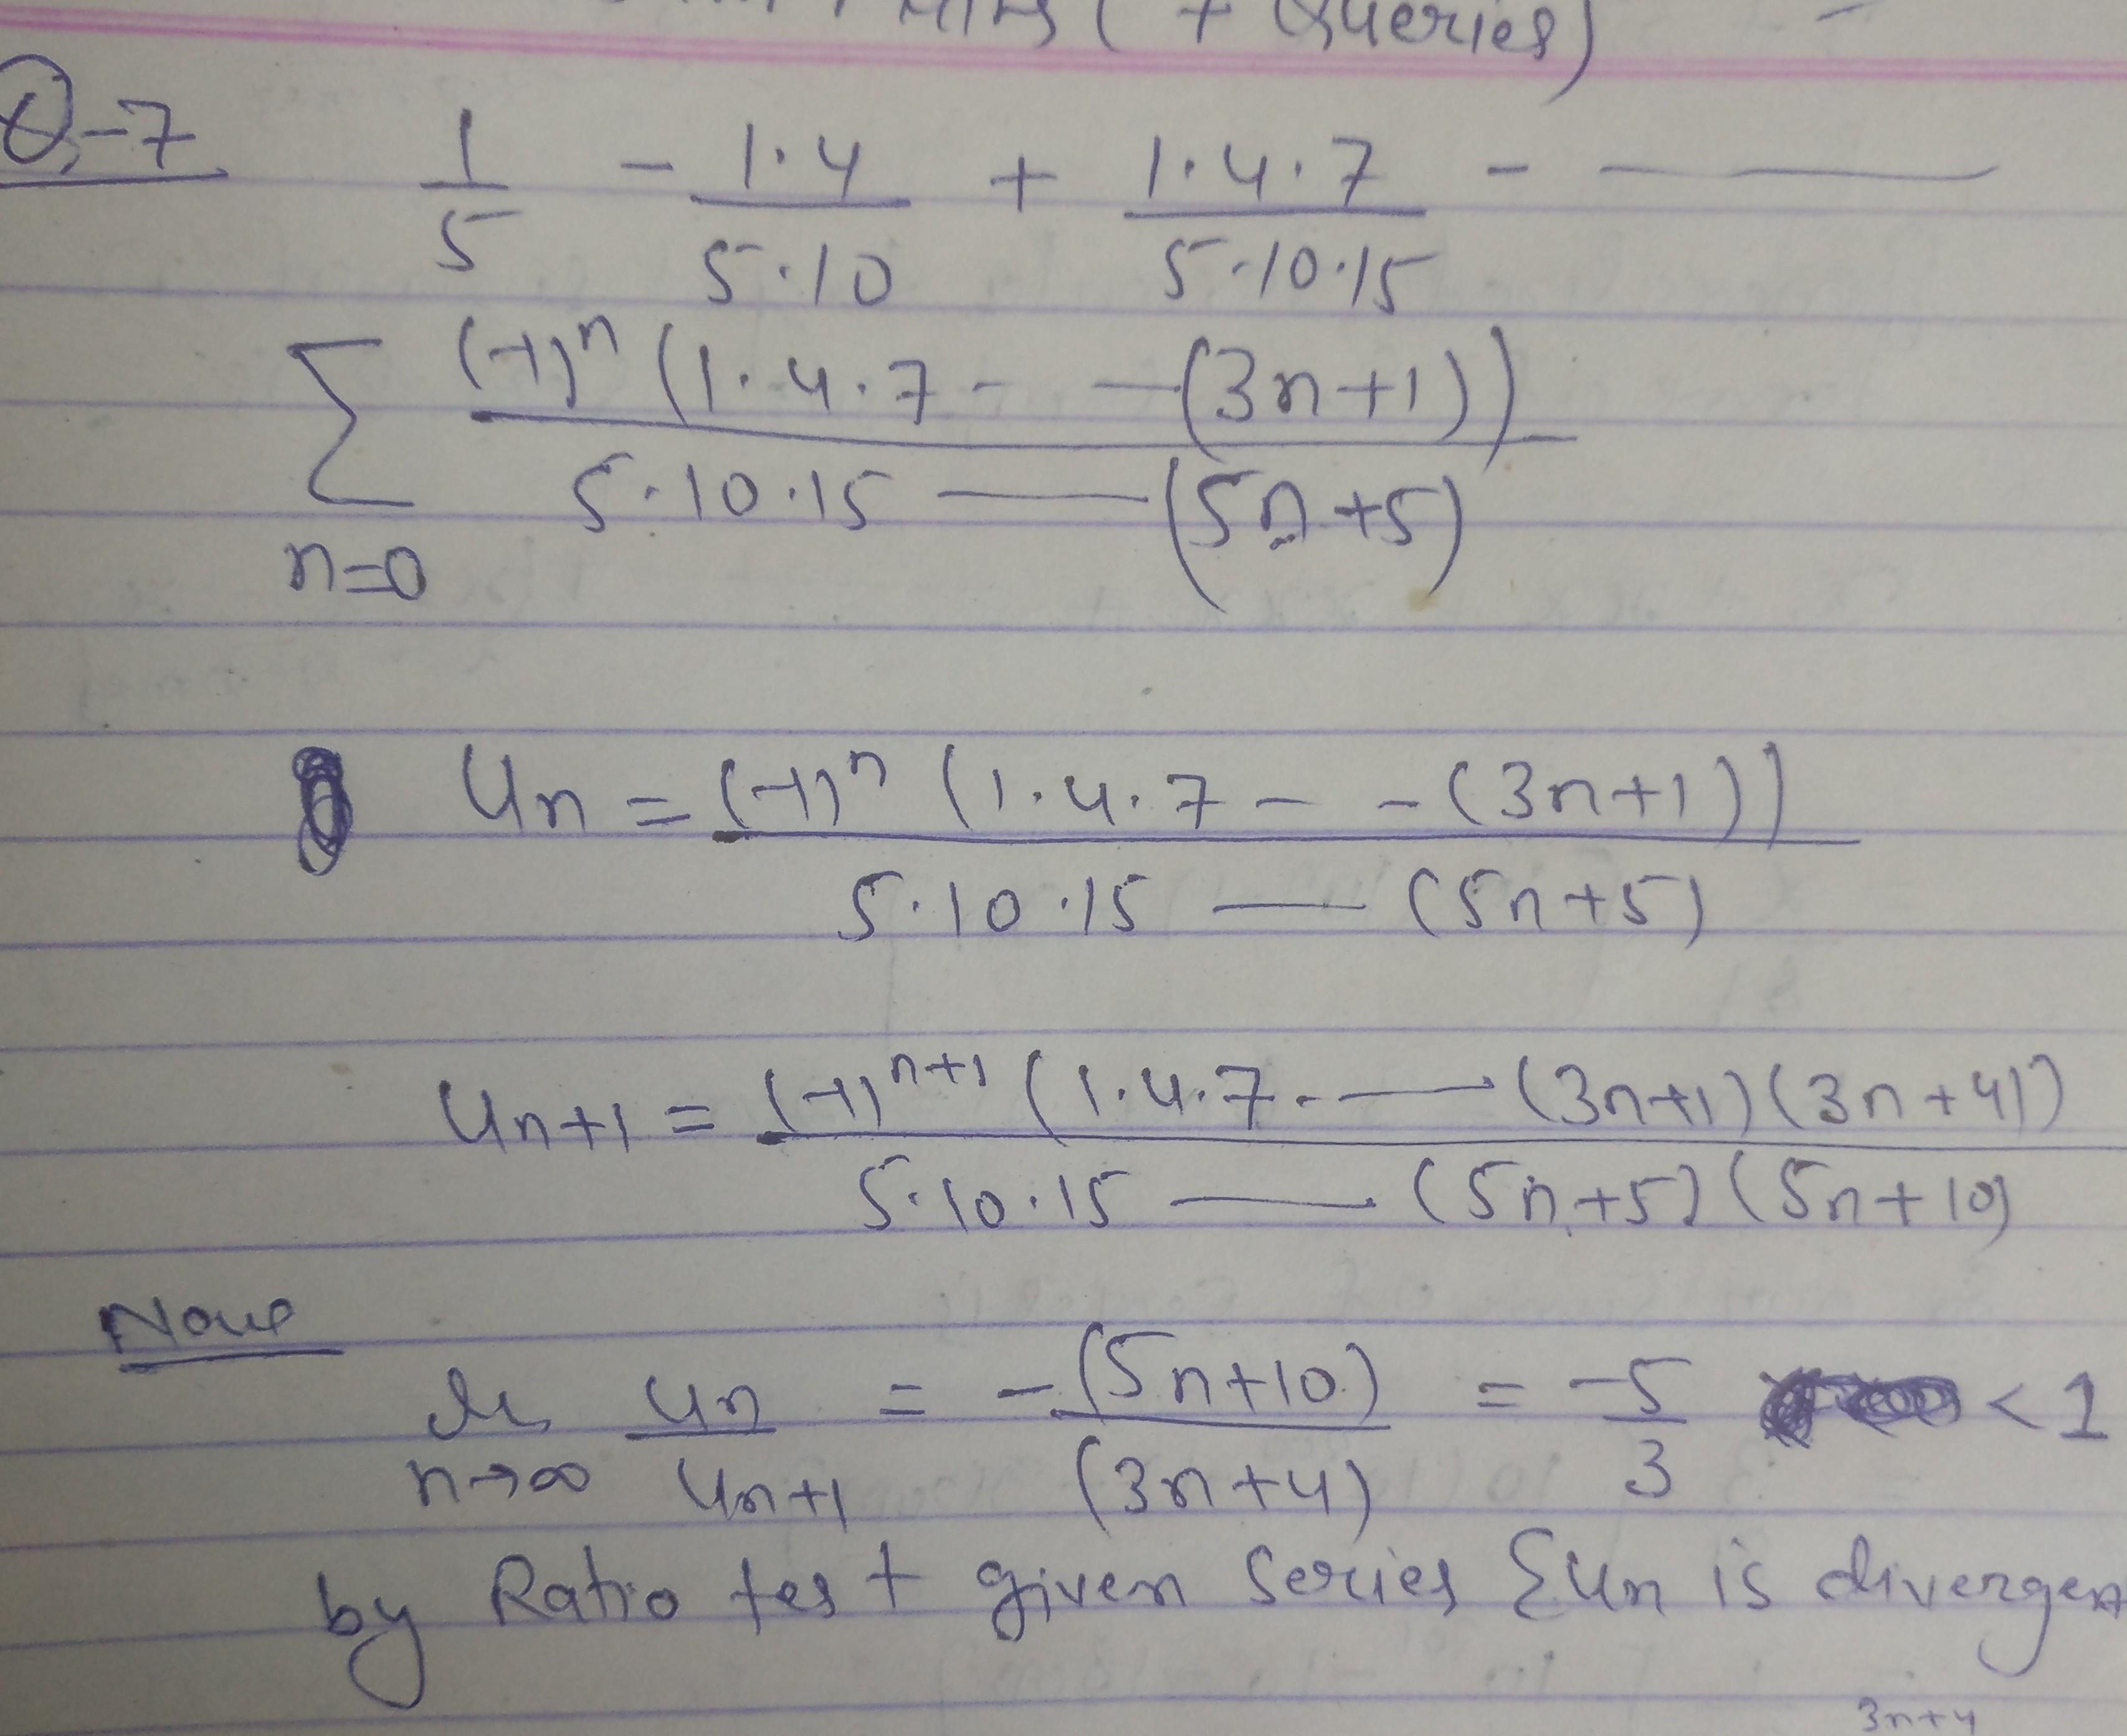 ( + Queries)
Q-7 1/5 - 1·4/5·10 + 1·4·7/5·10·15 - ———
∑ n=0 (-1)^n (1·4·7 - —(3n+1)) / 5·10·15 —— (5n+5)
Un = (-1)^n (1·4·7 - -(3n+1)) / 5·10·15 —— (5n+5)
Un+1 = (-1)^n+1 (1·4·7·——(3n+1)(3n+4)) / 5·10·15 —— (5n+5)(5n+10)
Now
lt n→∞ Un/Un+1 = -(5n+10)/(3n+4) = -5/3 < 1
by Ratio test given series ∑Un is divergent
3n+4